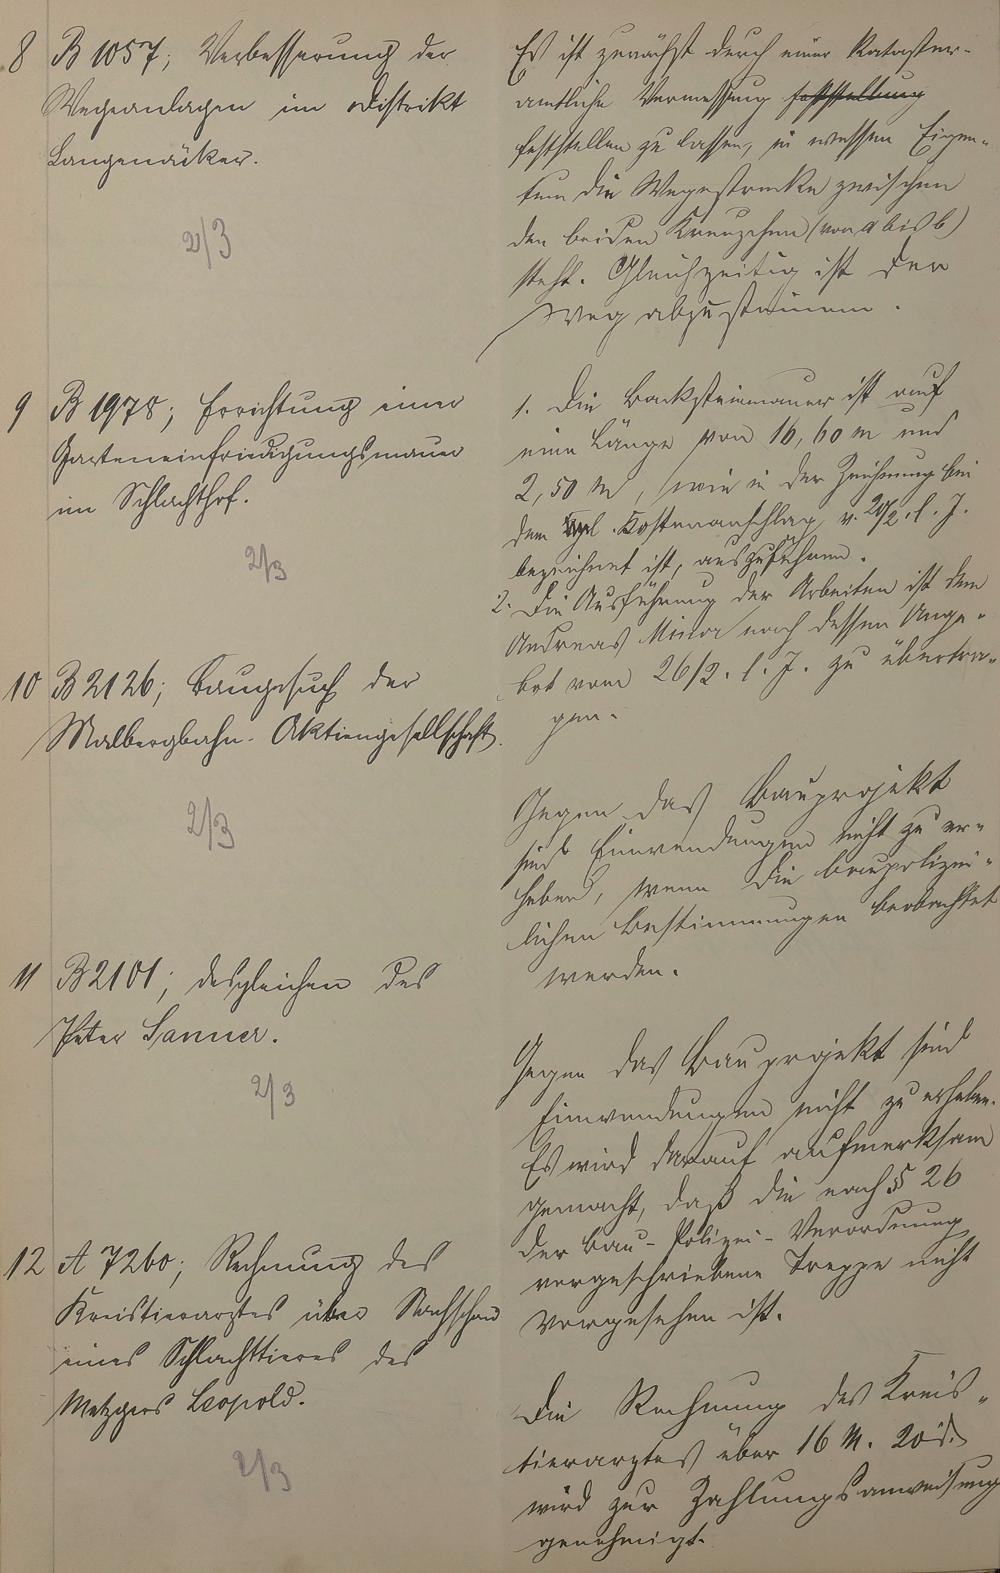 8 B 1057; Verbesserung der
Wegeanlagen im Distrikt
Langenäcker.
2/3
Es ist zunächst durch einer Kataster-
amtliche Vermessung feststellung
feststellen zu lassen, in wessen Eigen-
tum die Wegestrecke zwischen
den beiden Kreuzchen (von a bis b)
steht. Gleichzeitig ist der
Weg abzusteinen.
9 B 1978; Errichtung einer
Garteneinfriedigungsmauer
im Schlachthof.
2/3
1. Die Backsteinmauer ist auf
eine Länge von 16,60 m und
2,50 m, wie in der Zeichnung bei
dem Kostenanschlag v. 20/2. l. J.
bezeichnet ist, auszuführen.
2. Die Ausführung der Arbeiten ist dem
Andreas Minor nach dessen Ange-
bot vom 26/2. l. J. zu übertra-
gen.
10 B 2126; Baugesuch der
Malbergbahn-Aktiengesellschaft.
2/3
Gegen das Bauprojekt
sind Einwendungen nicht zu er-
heben, wenn die baupolizei-
lichen Bestimmungen beobachtet
werden.
11 B 2101; desgleichen des
Peter Sanner.
2/3
Gegen das Bauprojekt sind
Einwendungen nicht zu erheben.
Es wird darauf aufmerksam
gemacht, daß die nach § 26
der Bau-Polizei-Verordnung
vorgeschriebene Treppe nicht
vorgesehen ist.
12 A 7260; Rechnung des
Kreistierarztes über Nachschau
eines Schlachttieres des
Metzgers Leopold.
2/3
Die Rechnung des Kreis-
tierarztes über 16 M. 20 d.
wird zur Zahlungsanweisung
genehmigt.